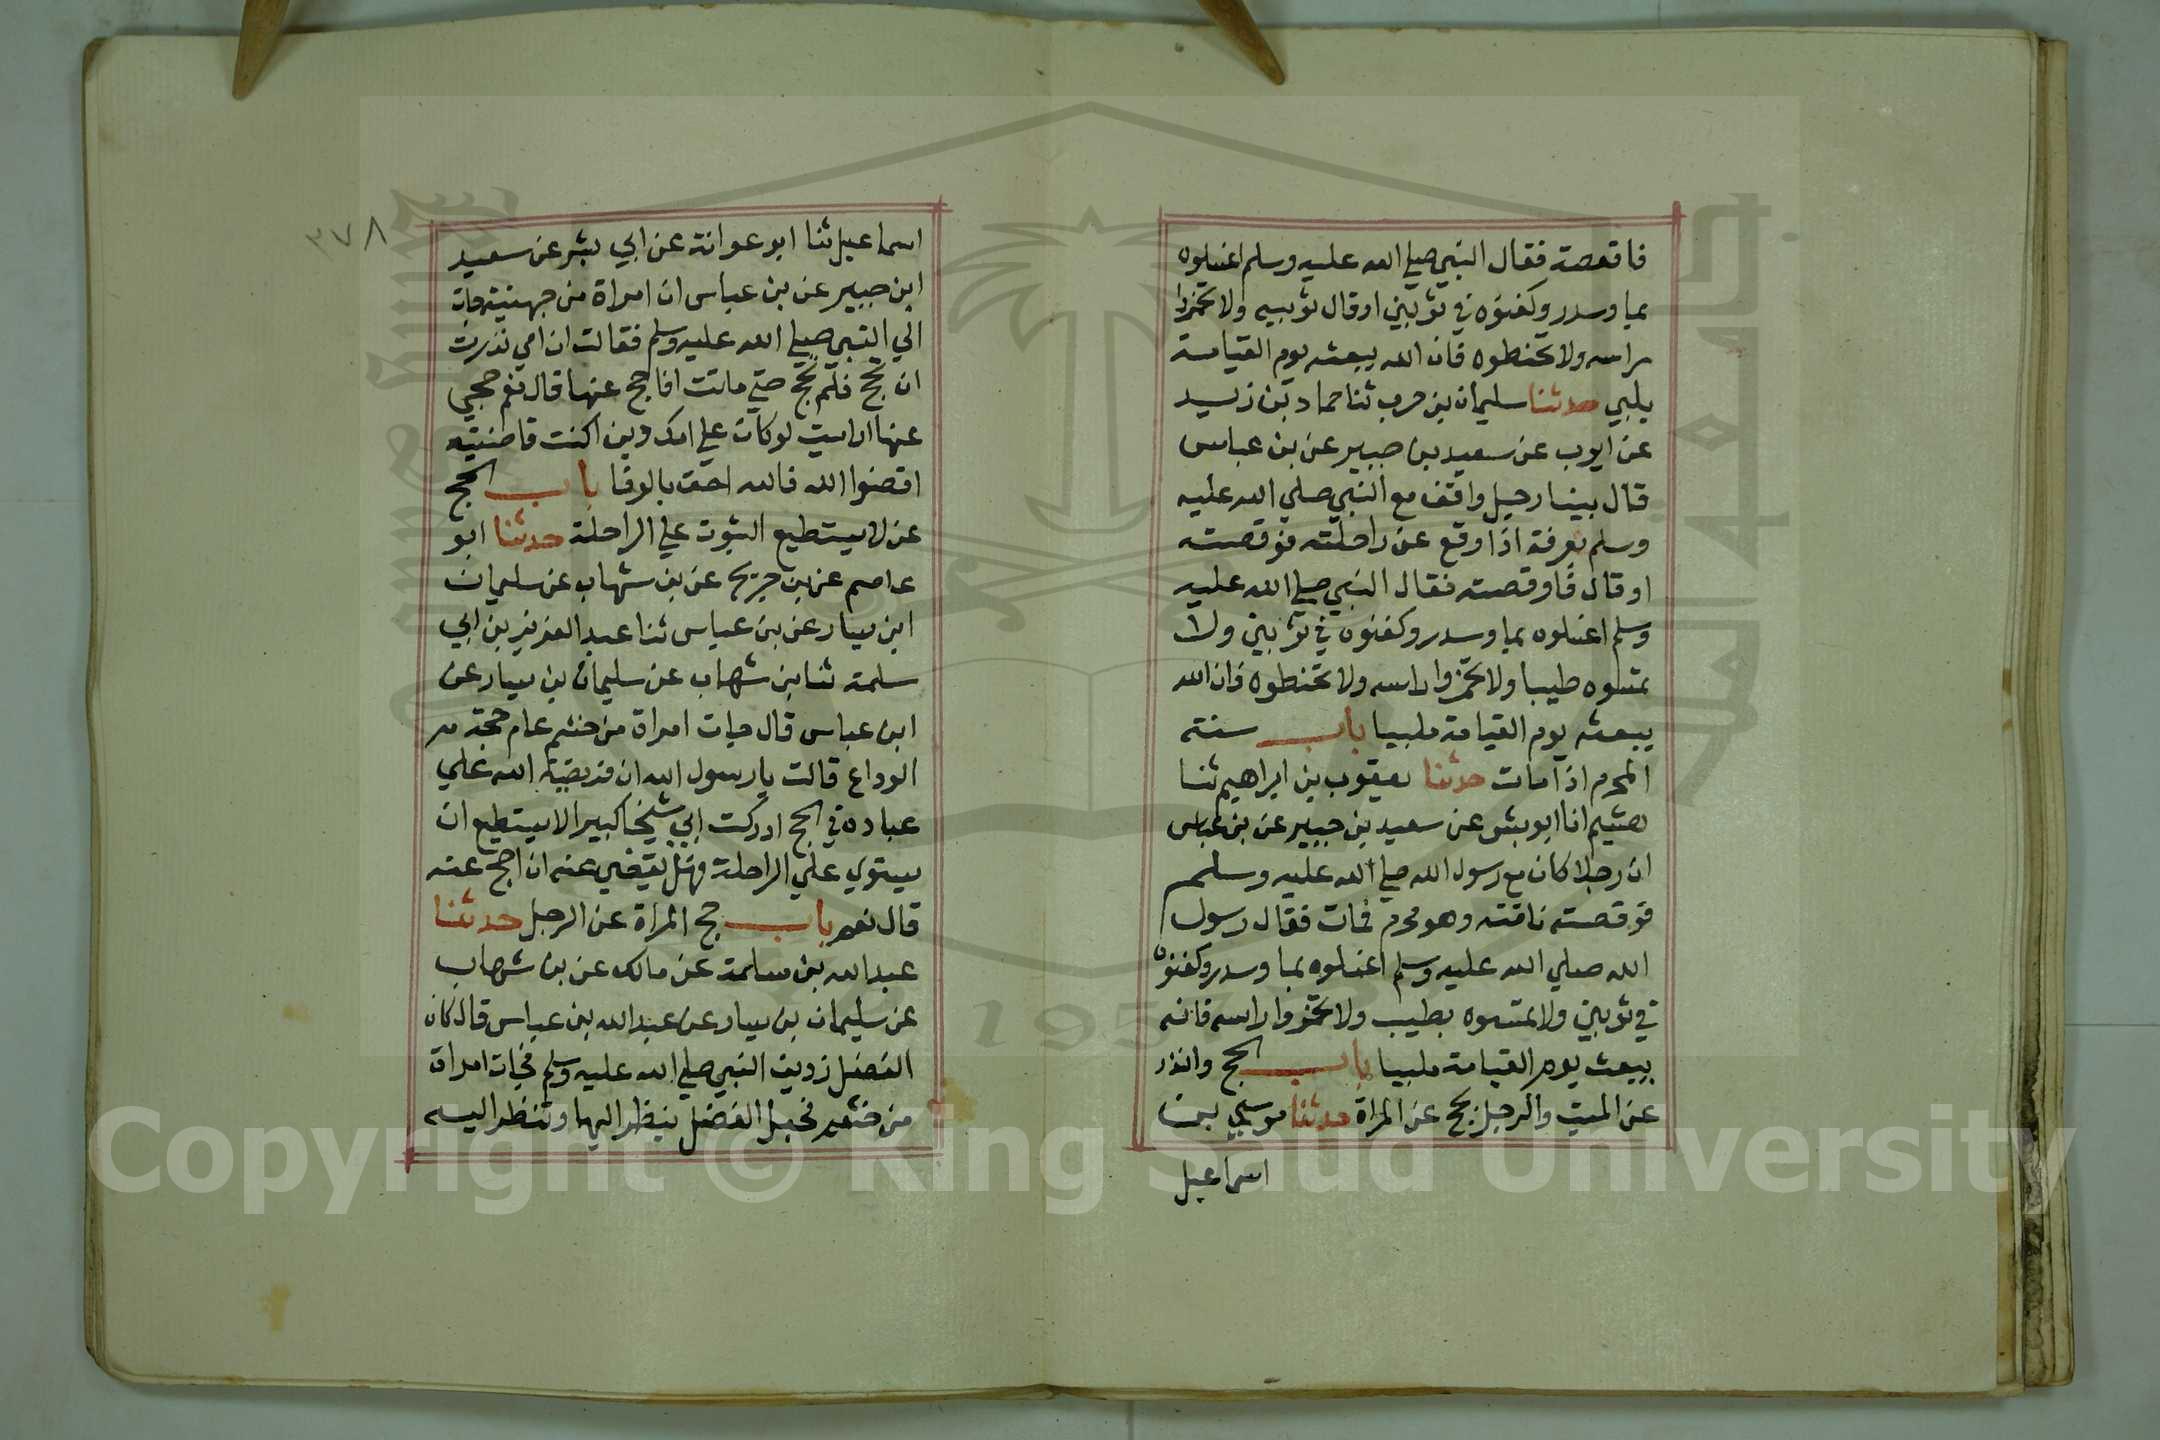 فاقعصته فقال النبي صلي الله عليه وسلم اغسلوه
بما وسدر وكفنوه في ثوبين او قال ثوبيه ولا تخمروا
راسه ولا تحنطوه فان الله يبعثه يوم القيامة
يلبي حدثنا سليمان بن حرب ثنا حماد بن زيد
عن ايوب عن سعيد بن جبير عن بن عباس
قال بينا رجل واقف مع النبي صلي الله عليه
وسلم بعرفة اذا وقع عن راحلته فوقصته
او قال فاوقصته فقال النبي صلي الله عليه
وسلم اغسلوه بما وسدر وكفنوه في ثوبين ولا
تمسوه طيبا ولا تخمروا راسه ولا تحنطوه فان الله
يبعثه يوم القيامة ملبيا باب سنة
المحرم اذا مات حدثنا يعقوب بن ابراهيم ثنا
هشيم انا ابو بشر عن سعيد بن جبير عن بن عباس
ان رجلا كان مع رسول الله صلي الله عليه وسلم
فوقصته ناقته وهو محرم فمات فقال رسول
الله صلي الله عليه وسلم اغسلوه بما وسدر وكفنوه
في ثوبين ولا تمسوه بطيب ولا تخمروا راسه فانه
يبعث يوم القيامة ملبيا باب الحج والنذر
عن الميت والرجل يحج عن المراة حدثنا موسي بن
اسماعيل
٣٧٨
اسماعيل ثنا ابو عوانة عن ابي بشر عن سعيد
ابن جبير عن بن عباس ان امراة من جهينة جات
الي النبي صلي الله عليه وسلم فقالت ان امي نذرت
ان تحج فلم تحج حتي ماتت افاحج عنها قال نعم حجي
عنها ارايت لو كان علي امك دين اكنت قاضيته
اقضوا الله فالله احق بالوفا باب الحج
عن لا يستطيع الثبوت علي الراحلة حدثنا ابو
عاصم عن بن جريج عن بن شهاب عن سليمان
ابن يسار عن بن عباس ثنا عبد العزيز بن ابي
سلمة ثنا بن شهاب عن سليمان بن يسار عن
ابن عباس قال جات امراة من خثعم عام حجة
الوداع قالت يا رسول الله ان فريضة الله علي
عباده في الحج ادركت ابي شيخا كبيرا لا يستطيع ان
يستوي علي الراحلة فهل يقضي عنه ان احج عنه
قال نعم باب حج المراة عن الرجل حدثنا
عبد الله بن مسلمة عن مالك عن بن شهاب
عن سليمان بن يسار عن عبد الله بن عباس قال كان
الفضل رديف النبي صلي الله عليه وسلم فجات امراة
من خثعم فجعل الفضل ينظر اليها وتنظر اليه
1957
Copyright © King Saud University